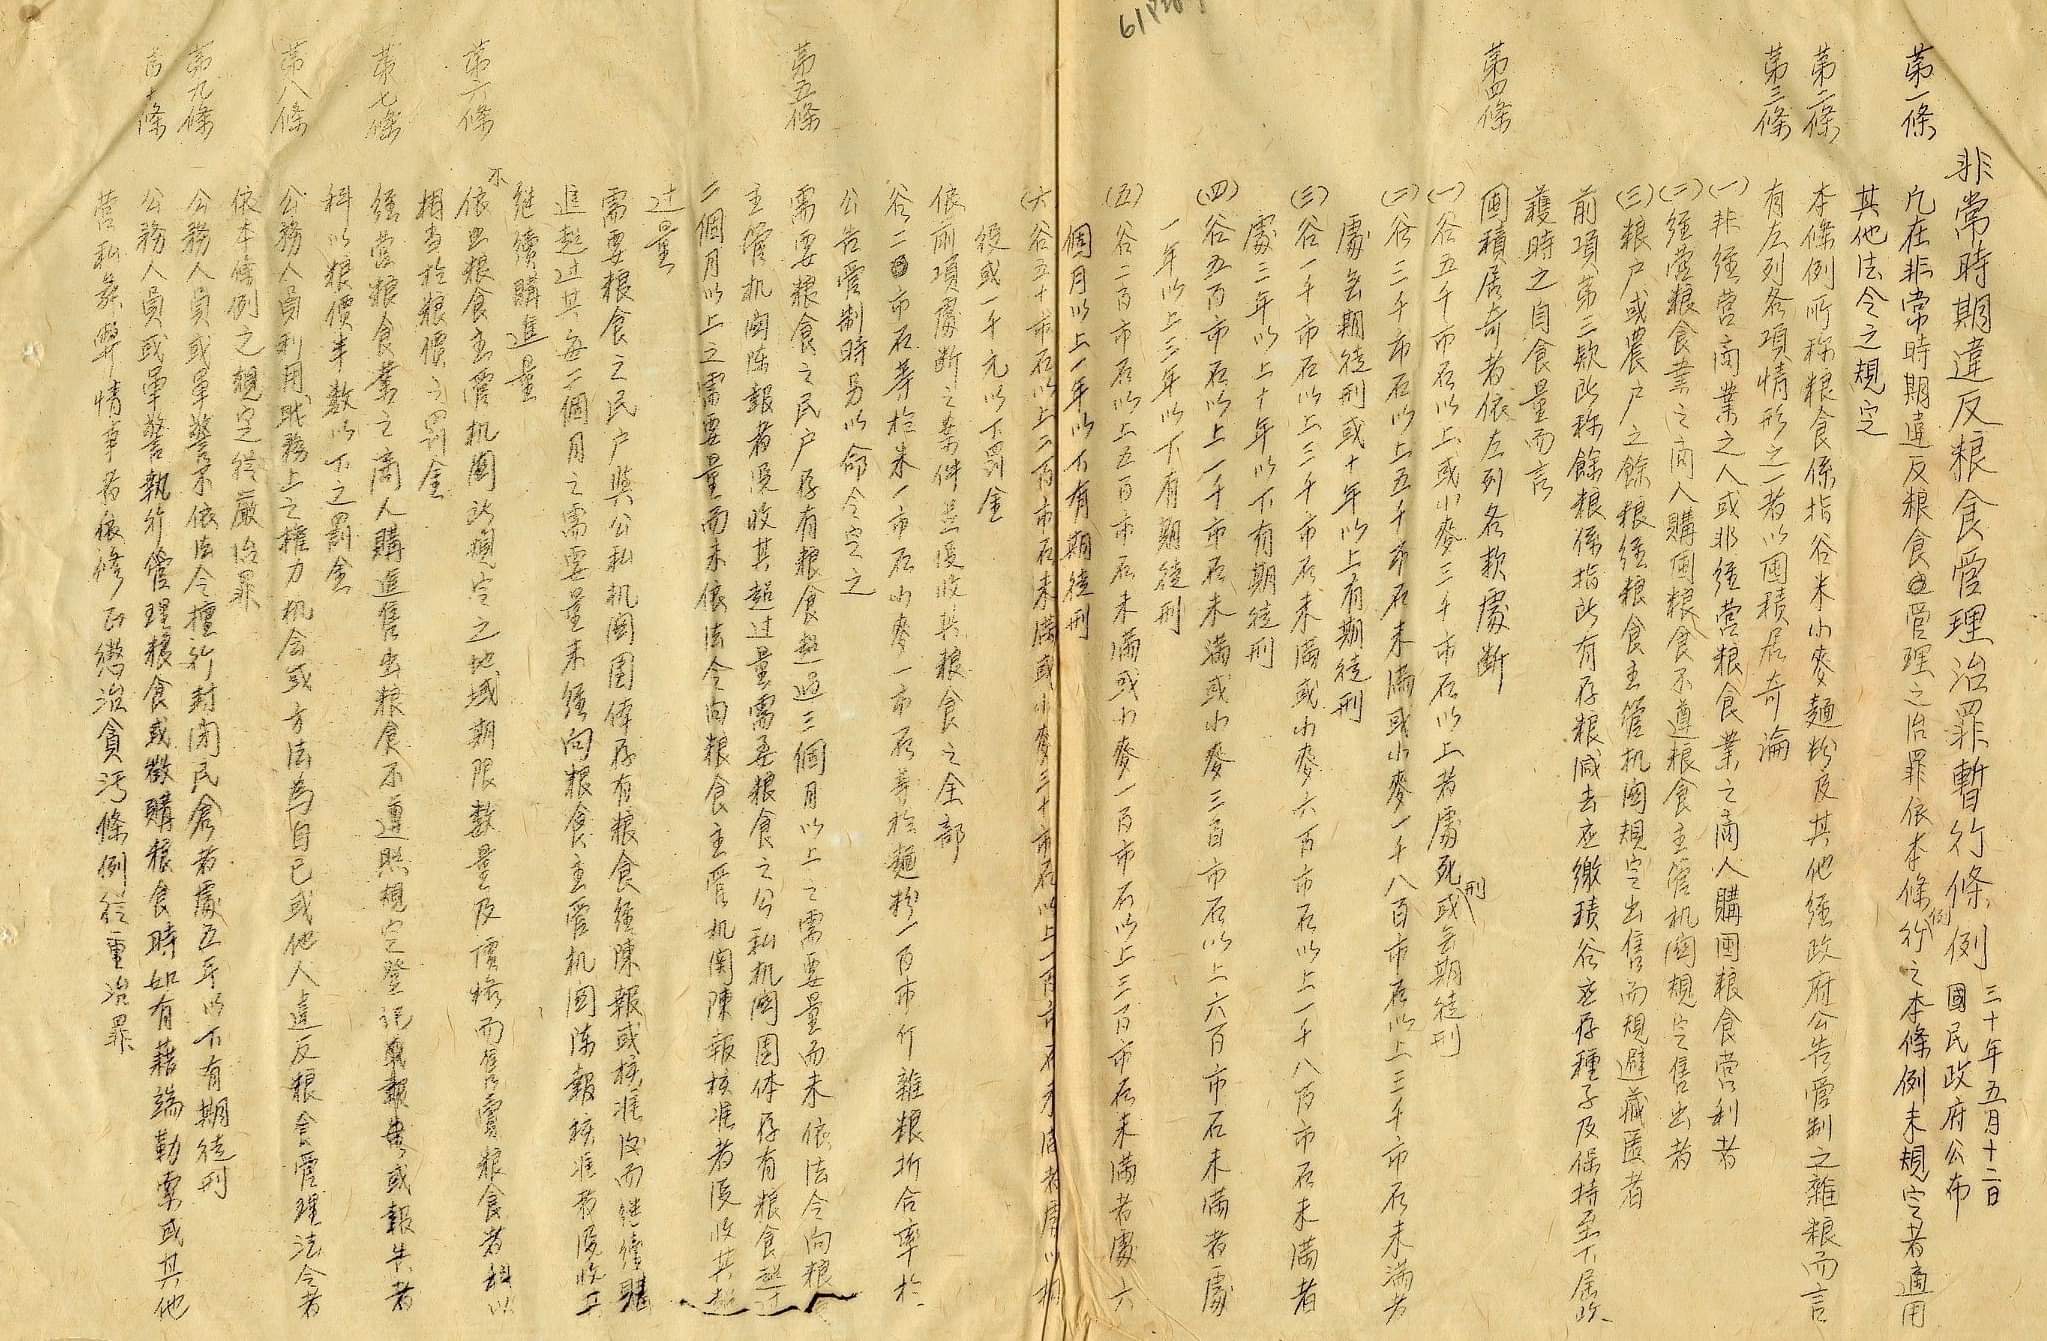 非常時期違反粮食管理治罪暫行條例 三十年五月十二日 國民政府公布
第一條 凡在非常時期違反粮食管理之治罪依本條例行之本條例未規定者適用
其他法令之規定
第二條 本條例所称粮食係指谷米小麥麵粉及其他經政府公告管制之雜粮而言
第三條 有左列各項情形之一者以囤積居奇論
(一)非經营商業之人或非經营粮食業之商人購囤粮食营利者
(二)經营粮食業之商人購囤粮食不遵粮食主管机関規定售出者
(三)粮户或農户之餘粮經粮食主管机関規定出售而規避藏匿者
前項第三款所称餘粮係指所有存粮减去应繳積谷应存種子及保持至下屆收
穫時之自食量而言
第四條 囤積居奇者依左列各款處断
(一)谷五千市石以上或小麥三千市石以上者處死刑或無期徒刑
(二)谷三千市石以上五千市石未滿或小麥一千八百市石以上三千市石未満者
處無期徒刑或十年以上有期徒刑
(三)谷一千市石以上三千市石未満或小麥六百市石以上一千八百市石未満者
處三年以上十年以下有期徒刑
(四)谷五百市石以上一千市石未満或小麥三百市石以上六百市石未満者處
一年以上三年以下有期徒刑
(五)谷二百市石以上五百市石未満或小麥一百市石以上三百市石未満者處六
個月以上一年以下有期徒刑
(六)谷五十市石以上二百市石未満或小麥三十市石以上一百市石未満者處以拘
役或一千元以下罰金
依前項處断之案件並没收其粮食之全部
谷二市石等於米一市石小麥一市石等於麵粉一百市斤雜粮折合率於
公告管制時另以命令定之
第五條 需要粮食之民户存有粮食超過三個月以上之需要量而未依法令向粮食
主管机関陈報者没收其超过量需要粮食之公私机関团体存有粮食超过
二個月以上之需要量而未依法令向粮食主管机関陳報核准者没收其超
过量
需要粮食之民户與公私机関团体存有粮食經陳報或核准後而継續購
進超过其每一個月之需要量未經向粮食主管机関陈報核准者没收其
継續購進量
第六條 不依照粮食主管机関所規定之地域期限数量及價格而售賣粮食者科以
相当於粮價之罰金
第七條 經营粮食業之商人購進售出粮食不遵照規定登记或報告或報失者
科以粮價半数以下之罰金
第八條 公務人員利用职務上之權力机会或方法為自己或他人違反粮食管理法令者
依本條例之規定從嚴治罪
第九條 公務人員或軍警不依法令擅行封閉民倉者處五年以下有期徒刑
第十條 公務人員或軍警執行管理粮食或徵購粮食時如有藉端勒索或其他
营私舞弊情事者依修正懲治貪污條例從重治罪